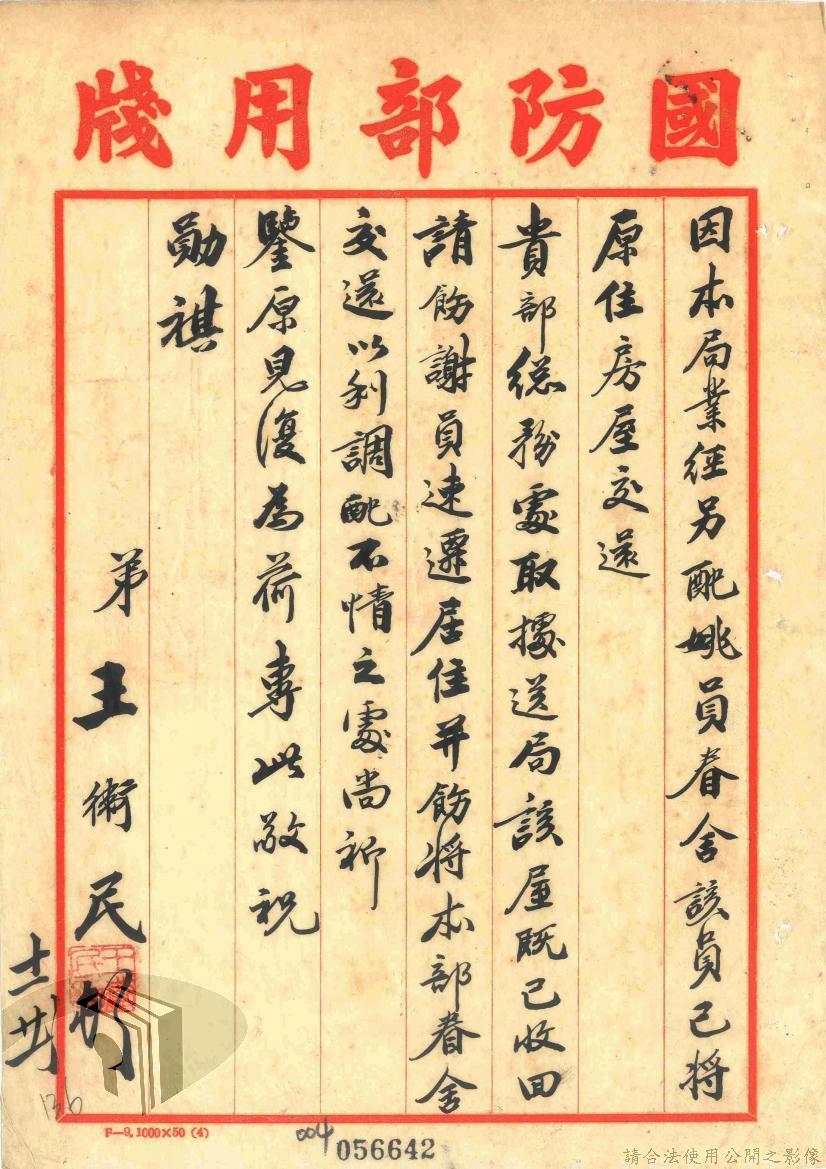 國防部用牋
因本局業經另配姚員眷舍該員已將
原住房屋交還
貴部總務處取據送局該屋既已收回
請飭謝員速遷居住并飭將本部眷舍
交還以利調配不情之處尚祈
鑒原見復為荷專此敬祝
勛祺
弟王術民
十二廿
136
F—9.1000×50 (4)
004
056642
請合法使用公開之影像